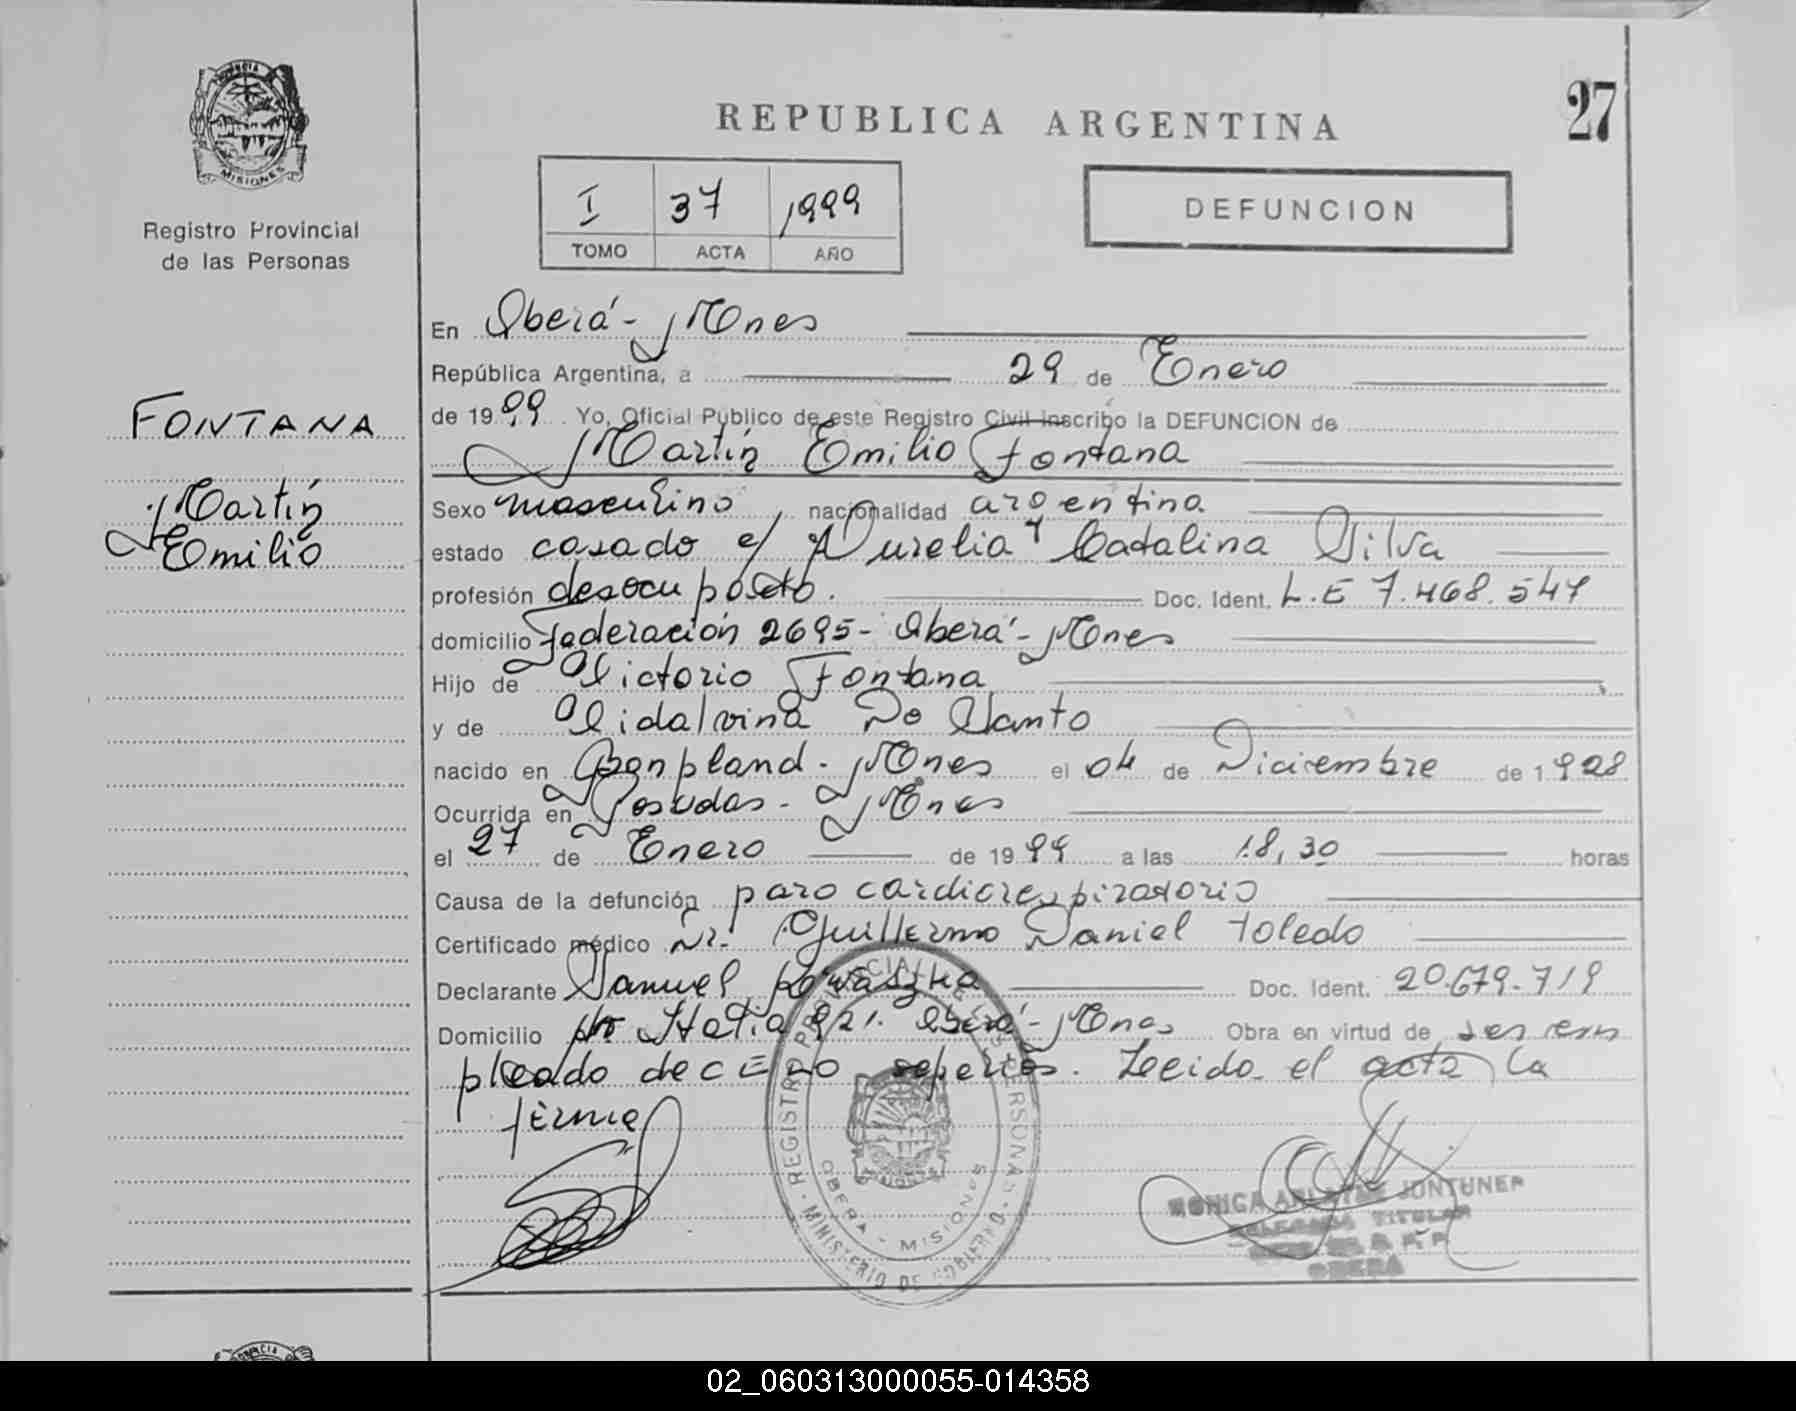 PROVINCIA
MISIONES
Registro Provincial
de las Personas
FONTANA
Martín
Emilio
27
REPUBLICA ARGENTINA
I 37 1999
TOMO ACTA AÑO
DEFUNCION
En Oberá - Mnes
República Argentina, a 29 de Enero
de 1999 Yo, Oficial Publico de este Registro Civil inscribo la DEFUNCION de
Martín Emilio Fontana
Sexo masculino nacionalidad argentina
estado casado c/ Aurelia Catalina Silva
profesión desocupado. Doc. Ident. L.E 7.468.547
domicilio Federación 2695 - Oberá - Mnes
Hijo de Victorio Fontana
y de Vidalvina Do Santo
nacido en Bonpland - Mnes el 04 de Diciembre de 1928
Ocurrida en Posadas - Mnes
el 27 de Enero de 1999 a las 18,30 horas
Causa de la defunción paro cardiorespiratorio
Certificado médico Dr. Guillermo Daniel Toledo
Declarante Samuel Doc. Ident. 20.679.719
Domicilio Italia 921. Oberá - Mnes Obra en virtud de ser em
pleado de sepelios. Leida el acta la
firma
REGISTRO PROVINCIAL DE LAS PERSONAS
OBERA - MISIONES
MINISTERIO DE GOBIERNO
MONICA JUNTUNEP
DELEGADA TITULAR
OBERA
PROVINCIA
02_060313000055-014358